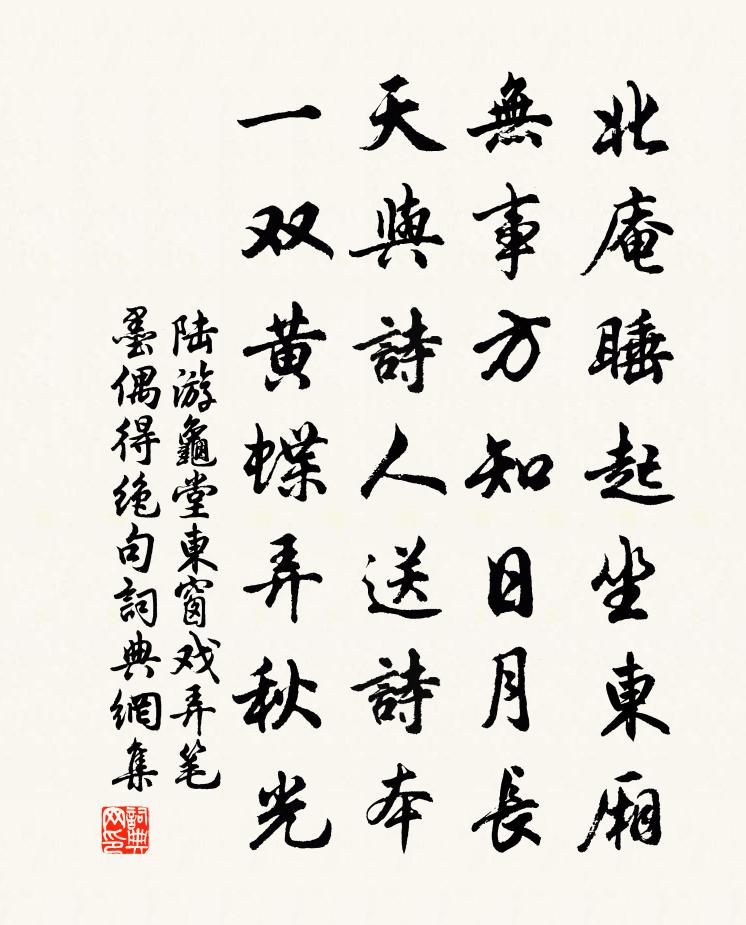 北庵睡起坐東廂
無事方知日月長
天與詩人送詩本
一双黄蝶弄秋光
陆游龜堂東窗戏弄笔
墨偶得绝句詞典網集
詞典網印